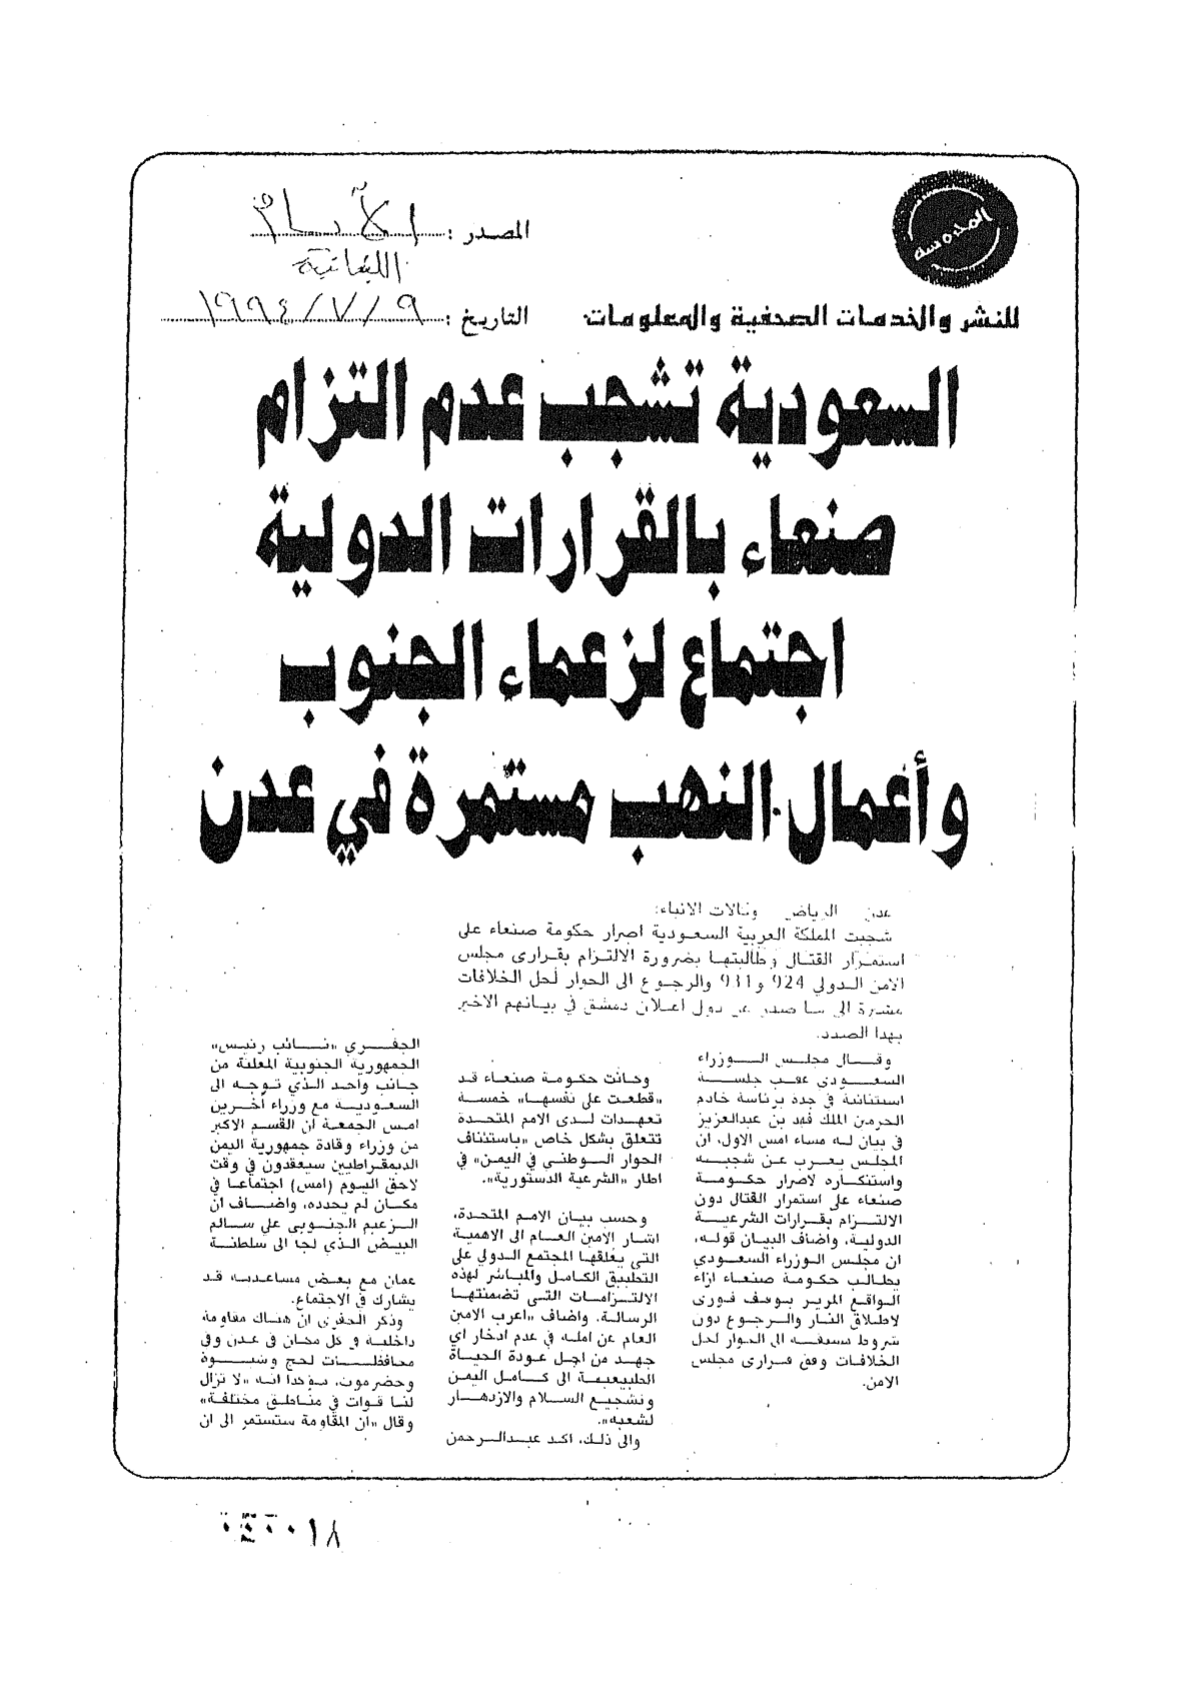 المصدر :
اللبنانية
التاريخ : ٩/٧/١٩٩٤
للنشر والخدمات الصحفية والمعلومات
السعودية تشجب عدم التزام
صنعاء بالقرارات الدولية
اجتماع لزعماء الجنوب
وأعمال النهب مستمرة في عدن
عدن الرياض وكالات الانباء:
شجبت المملكة العربية السعودية اصرار حكومة صنعاء على
استمرار القتال وطالبتها بضرورة الالتزام بقرارى مجلس
الامن الدولي 924 و931 والرجوع الى الحوار لحل الخلافات
مشيرة الى ما صدر عن دول اعلان دمشق في بيانهم الاخير
بهذا الصدد.
وقال مجلس الوزراء
السعودي عقب جلسة
استثنائية في جدة برئاسة خادم
الحرمين الملك فهد بن عبدالعزيز
في بيان له مساء امس الاول، ان
المجلس يعرب عن شجبه
واستنكاره لاصرار حكومة
صنعاء على استمرار القتال دون
الالتزام بقرارات الشرعية
الدولية، واضاف البيان قوله،
ان مجلس الوزراء السعودي
يطالب حكومة صنعاء ازاء
الواقع المرير بوقف فورى
لاطلاق النار والرجوع دون
شروط مسبقة الى الحوار لحل
الخلافات وفق قرارى مجلس
الامن.
وكانت حكومة صنعاء قد
«قطعت على نفسها» خمسة
تعهدات لدى الامم المتحدة
تتعلق بشكل خاص «باستئناف
الحوار الوطني في اليمن» في
اطار «الشرعية الدستورية».
وحسب بيان الامم المتحدة،
اشار الامين العام الى الاهمية
التى يعلقها المجتمع الدولي على
التطبيق الكامل والمباشر لهذه
الالتزامات التى تضمنتها
الرسالة. واضاف «اعرب الامين
العام عن امله في عدم ادخار اي
جهد من اجل عودة الحياة
الطبيعية الى كامل اليمن
وتشجيع السلام والازدهار
لشعبه».
والى ذلك، اكد عبدالرحمن
الجفري «نائب رئيس»
الجمهورية الجنوبية المعلنة من
جانب واحد الذي توجه الى
السعودية مع وزراء آخرين
امس الجمعة ان القسم الاكبر
من وزراء وقادة جمهورية اليمن
الديمقراطيين سيعقدون في وقت
لاحق اليوم (امس) اجتماعا في
مكان لم يحدده، واضاف ان
الزعيم الجنوبى علي سالم
البيض الذي لجا الى سلطنة
عمان مع بعض مساعديه قد
يشارك في الاجتماع.
وذكر الجفرى ان هناك مقاومة
داخلية في كل مكان في عدن وفي
محافظات لحج وشبوة
وحضرموت، مؤكدا انه «لا تزال
لنا قوات في مناطق مختلفة»
وقال «ان المقاومة ستستمر الى ان